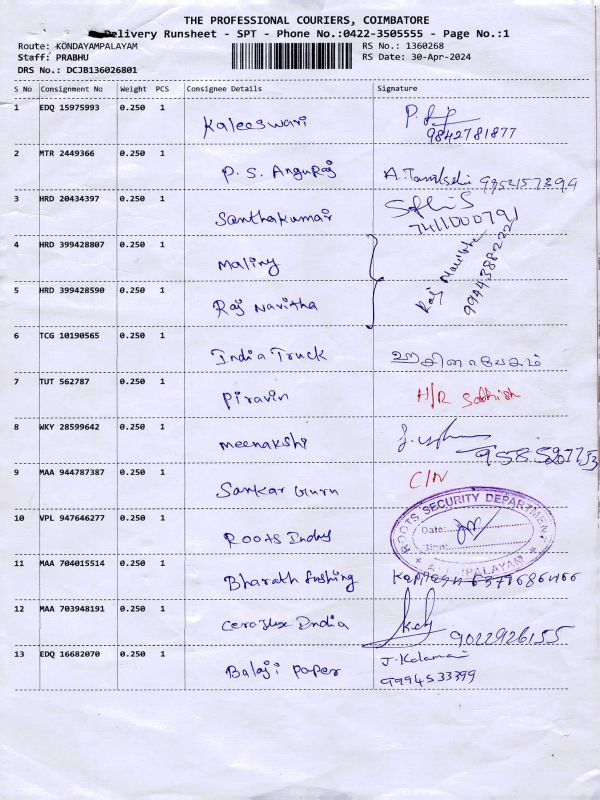 THE PROFESSIONAL COURIERS, COIMBATORE
Delivery Runsheet - SPT - Phone No.:0422-3505555 - Page No.:1
Route: KONDAYAMPALAYAM
RS No.: 1360268
Staff: PRABHU
RS Date: 30-Apr-2024
DRS No.: DCJB136026801
S No Consignment No Weight PCS Consignee Details Signature
1 EDQ 15975993 0.250 1 Kaleeswari
9842781877
2 MTR 2449366 0.250 1 P. S. AnguRaj A. Tamilselvi 9952157399
3 HRD 20434397 0.250 1 Santhakumar Sathis
7411000791
4 HRD 399428807 0.250 1 Maliny
5 HRD 399428590 0.250 1 Raj Navitha Raj Navitha
9944388222
6 TCG 10190565 0.250 1 India Truck
7 TUT 562787 0.250 1 Piravin H/R Sathish
8 WKY 28599642 0.250 1 meenakshi
9 MAA 944787387 0.250 1 Sankar Guru C/N
10 VPL 947646277 0.250 1 Roots Indus ROOTS SECURITY DEPARTMENT
Date:
11 MAA 704015514 0.250 1 Bharath fushing 6379686466
12 MAA 703948191 0.250 1 Ceroflex India 9022926155
13 EDQ 16682070 0.250 1 Balaji Paper J. Kalamani
9994533399